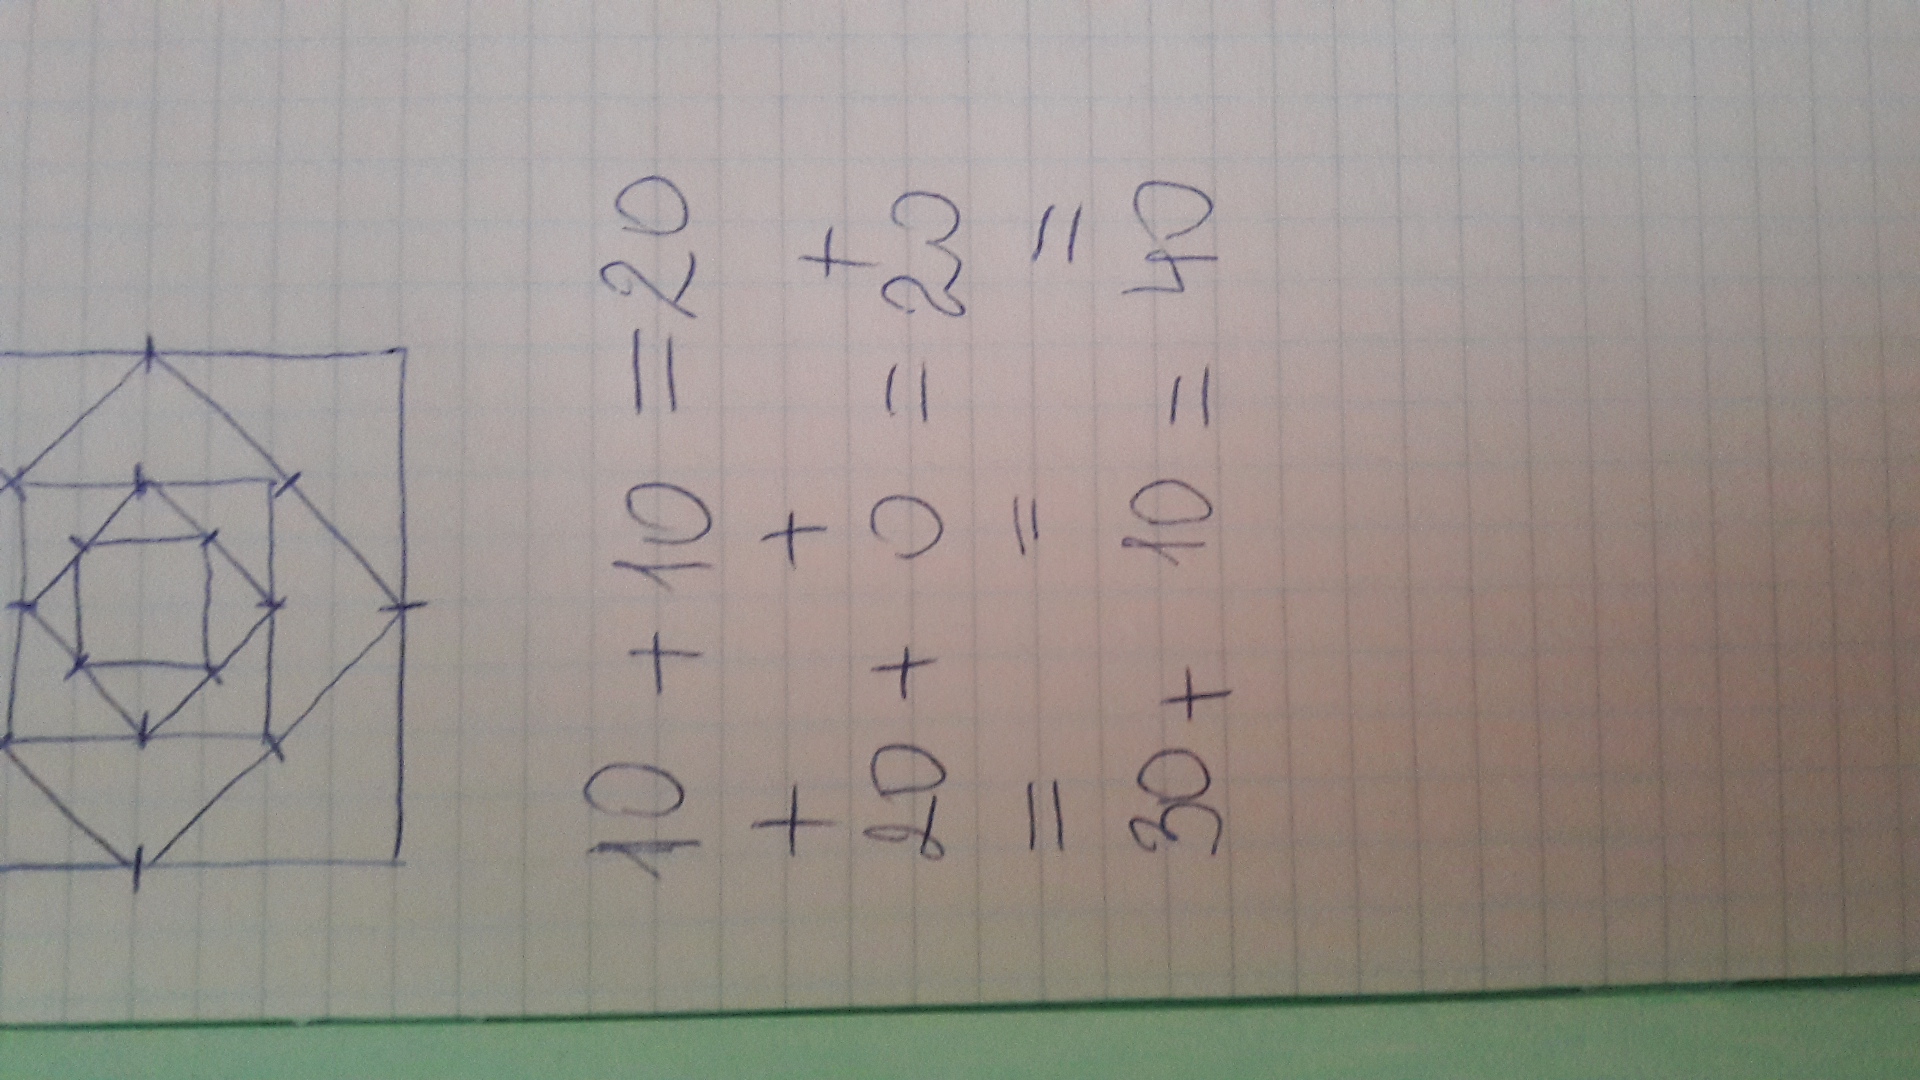 10 + 10 = 20
+ + +
20 + 0 = 20
= = =
30 + 10 = 40